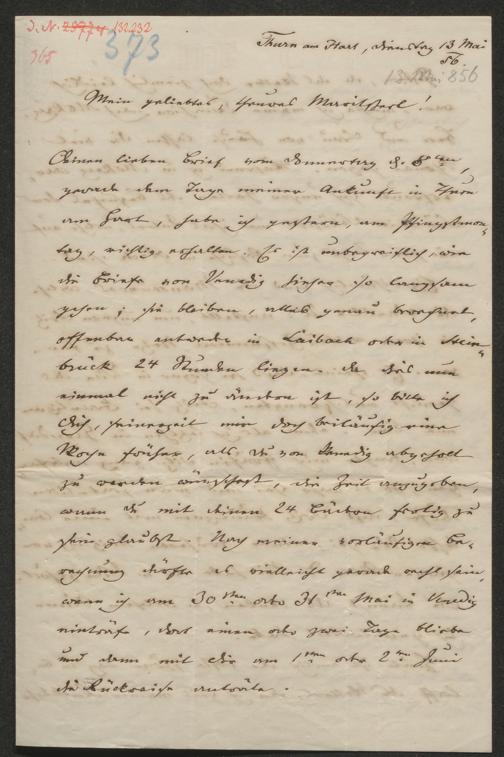 J. N. 23774 132.232
365
373
Thurn am Hart, Dienstag 13 Mai
56.
13. Mai 856
Mein geliebtes, theures Marischerl!
Deinen lieben Brief vom Donnerstag d. 8ten,
gerade dem Tage meiner Ankunft in Thurn
am Hart, habe ich gestern, am Pfingstmon-
tag, richtig erhalten. Es ist unbegreiflich, wie
die Briefe von Venedig hieher so langsam
gehen; sie bleiben, alles genau berechnet,
offenbar entweder in Laibach oder in Stein-
brück 24 Stunden liegen. Da dies nun
einmal nicht zu ändern ist, so bitte ich
Dich, seinerzeit mir doch beiläufig eine
Woche früher, als du von Venedig abgeholt
zu werden wünschest, die Zeit anzugeben,
wann du mit deinen 24 Bädern fertig zu
sein glaubst. Nach meiner vorläufigen Be-
rechnung dürfte es vielleicht gerade recht sein,
wenn ich am 30ten oder 31ten Mai in Venedig
einträfe, dort einen oder zwei Tage bliebe
und dann mit dir am 1ten oder 2ten Juni
die Rückreise anträte.